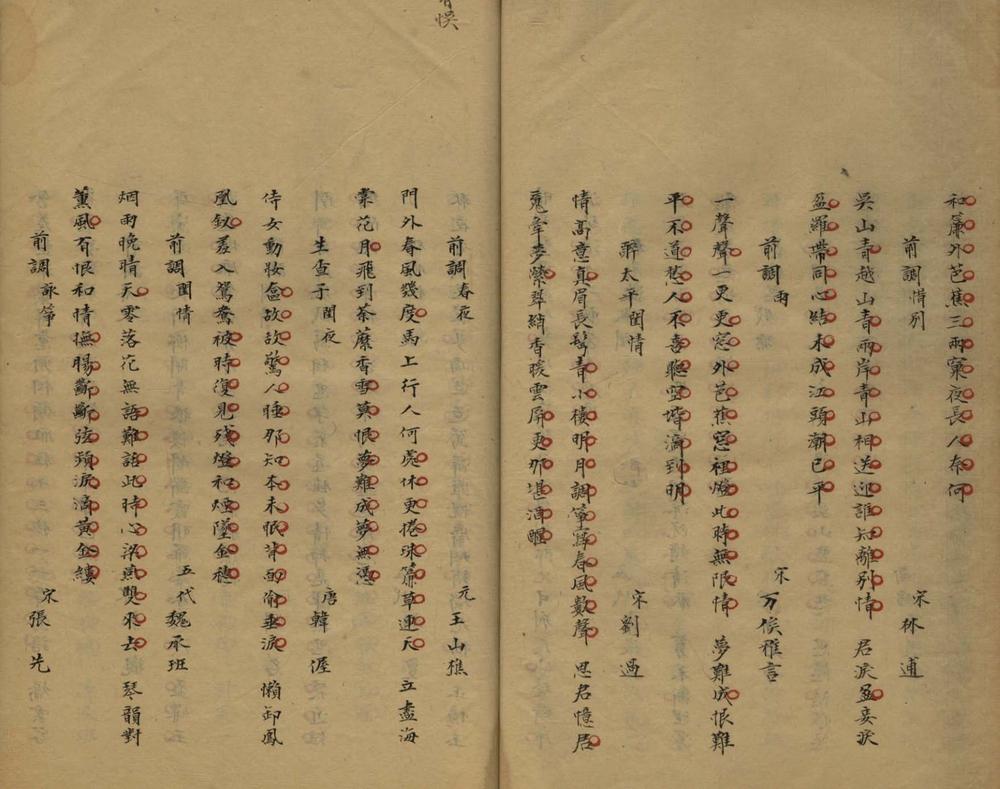 和簾外芭蕉三兩窠夜長人奈何
前調惜別　宋林逋
吳山青越山青兩岸青山相送迎誰知離別情　君淚盈妾淚
盈羅帶同心結未成江頭潮已平
前調雨　宋万俟雅言
一聲聲一更更窓外芭蕉窓裡燈此時無限情　夢難成恨難
平不道愁人不喜聽空堦滴到明
醉太平閨情　宋劉過
情高意真眉長鬢青小樓明月調箏寫春風數聲　思君憶君
魂牽夢縈翠綃香暖雲屏更那堪酒醒
前調春夜　元王山樵
門外春風幾度馬上行人何處休更捲珠簾草連天　立盡海
棠花月飛到荼蘼香雪莫恨夢難成夢無憑
生查子閨夜　唐韓偓
侍女動妝奩故故驚人睡那知本未眠背面偷垂淚　懶卸鳳
凰釵羞入鴛鴦被時復見殘燈和烟墜金穗
前調閨情　五代魏承班
烟雨晚晴天零落花無語難話此時心梁燕雙來去　琴韻對
薰風有恨和情撫腸斷斷弦頻淚滴黃金縷
前調詠箏　宋張先